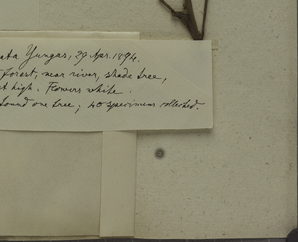 ata Yungas, 29 Apr. 1894.
forest, near river, shade tree,
t high. Flowers white.
found one tree; 40 specimens collected.